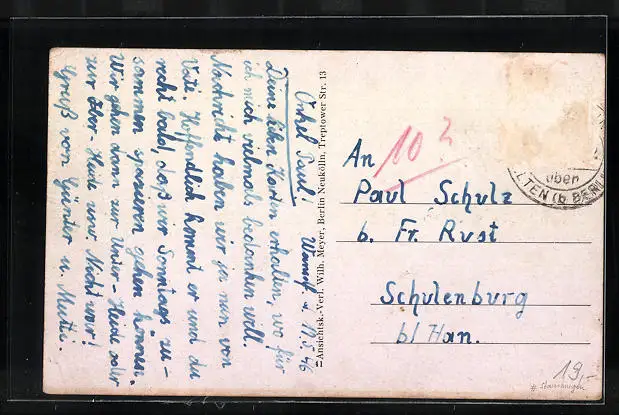 Onkel Paul!
Deine lieben Karten erhalten, wo für
ich mich vielmals bedanken will.
Nachricht haben wir ja nun von
Vati. Hoffendlich kommt er und du
recht bald, daß wir Sonntags zu-
sammen spazieren gehen können.
Wir gehen dann zur Unter-Heide oder
zur Heide und Nicht wir!
Gruß von Günter u. Mutti.
11.5.46
Ansichtsk.-Verl. Wilh. Meyer, Berlin Neukölln, Treptower Str. 13
10
An
Paul Schulz
b. Fr. Rust
Schulenburg
bl Han.
über
LTEN (b. BERLIN
19.-